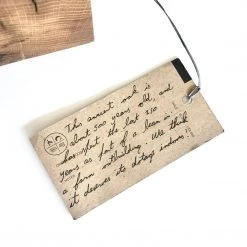 This ancient oak is
about 500 years old, and
has spent the last 210
years as part of a beam in
a farm outbuilding. We think
it deserves its dotage indoors.